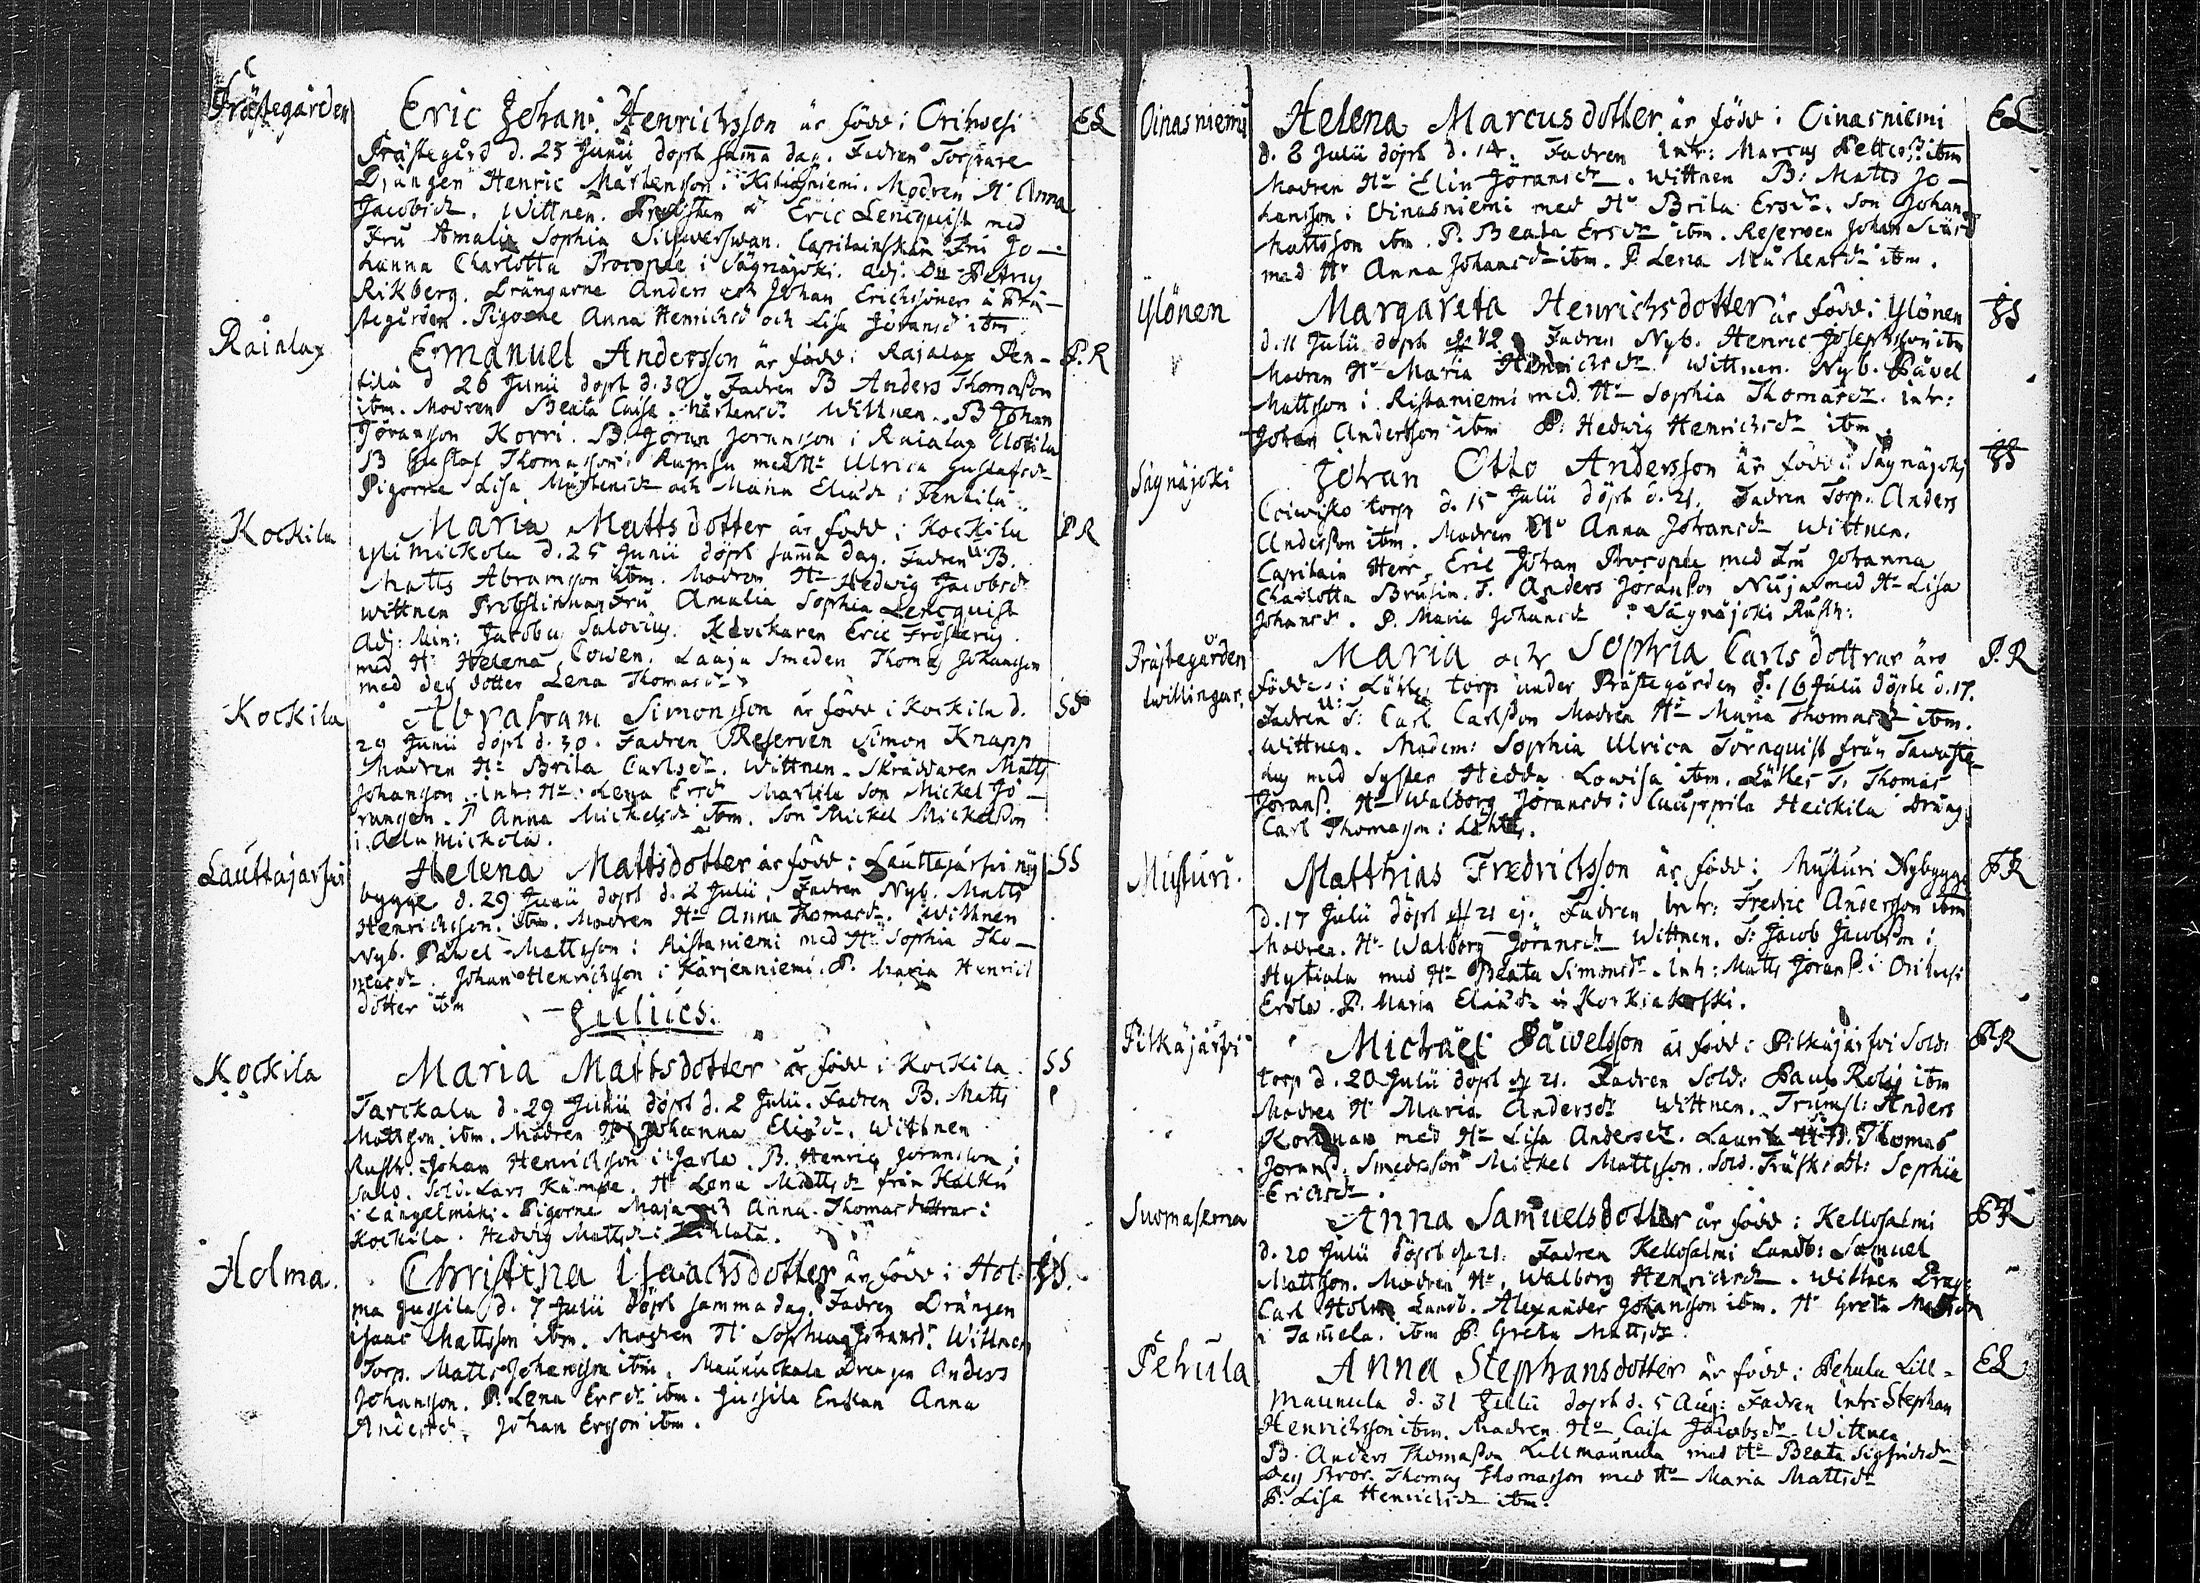 Prästegården
Eric Johan Henrichsson är född i Orihvesi
EL
Prästegård d. 25 Junii döpt samma dag. Fadren Torpare
Drängen Henric Mårtensson i Ristaniemi. Modren H. Anna
Jacobsdr. Wittnen. Eric Lencquist med
Fru Amalia Sophia Silfwerswan. Capitainskan Fru Jo-
hanna Charlotta Procopée i Sägnäjoki. adj: Petrus
Rikberg. Drängarne Anders och Johan Erichssöner å Prä-
stegården. Pigorne Anna Henrichsd och Lisa Jöransd ibm
Raialax
Emanuel Andersson är född i Raialax Pen-
P.R
tilä d 26 Junii döpt d. 30 Fadren B Anders Thomasson
ibm. Modren Beata Caisa Mårtensdr Wittnen. B Johan
Jöransson Korri. B. Jöran Jöransson i Raialax Uotila
B Gustaf Thomasson i med Hu Ulrica Gustafsdr
Pigorne Lisa Mårtensdr och Maria Eliædr i Pentilä
Kockila
Maria Mattsdotter är född i Kockila
P R
Ylimickola d. 25 Junii döpt samma dag. Fadren B.
Matts Abramsson ibm. Modren Hu Hedwig Jacobsdr
Wittnen Probstinnan Fru Amalia Sophia Lencquist
Adj: Min: Jacobus Salovius. Klockaren Eric Frosterus
med H. Helena Cowen. Lauja Smeden Thomas Johansson
med des dotter Lena Thomasdr
Kockila
Abraham Simonsson är född i Kockila d.
SS
29 Junii döpt d. 30. Fadren Reserven Simon Knapp
Modren Hu Brita Carlsdr. Wittnen. Skräddaren Matts
Johansson. Inh: Hu: Lena Ersdr Marlila Son Mickel Jö-
ransson. P Anna Mickelsdr ibm. Son Mickel Mickelsson
i Alamickola.
Lauttajärfvi
Helena Mattsdotter är född i Lauttajärfvi ny
SS
bygge d. 29 Junii döpt d. 2 Julii. Fadren Nyb. Matts
Henrichsson. ibm. Modren Hu Anna Thomasdr. Wittnen
Nyb. Påwel Mattsson i Ristaniemi med Hu Sophia Tho-
masdr. Johan Henrichsson i Kärjenniemi. P. Maria Henrics
dotter ibm
Julius.
Kockila
Maria Mattsdotter är född i Kockila
SS
Tarckala d. 29 Junii döpt d. 2 Julii. Fadren B. Matts
Mattsson ibm. Modren Hu Johanna Eliædr. Wittnen
Rusth: Johan Henricksson i Jarla. B. Henric Jöransson i
Salo. Sold. Lars Kämpe. Hu Lena Mattsdr från Halku
i Längelmäki. Pigorne Maja och Anna Thomasdöttrar i
Kockila. Hedwig Mattsdr i
Holma.
Christina Isaachsdotter är född i Hol-
SS.
ma Jussila d. 7 Julii döpt samma dag. Fadren Drängen
Isaac Mattsson ibm. Modren H Sophia Johansdr. Wittnen
Torp. Matts Johansson ibm. Maunuckala Drengen Anders
Johansson. P. Lena Ersdr ibm. Jussila Enkan Anna
Andersdr. Johan Ersson ibm.
Oinasniemi
Helena Marcusdotter är född i Oinasniemi
EL
d. 8 Julii döpt d. 14. Fadren Inh: Marcus Petterss: ibm
Modren Hu Elin Jöransdr. Wittnen B: Matts Jo-
hansson i Oinasniemi med Hu Brita Ersdr. Son Johan
Mattsson ibm. P. Beata Ersdr ibm. Reserven Johan
med Hu Anna Johansdr ibm. P. Lena Mårtensdr ibm.
Ylönen
Margareta Henrichsdotter är född i Ylönen
SS
d. 11 Julii döpt d 12 Fadren Nyb. Henric Josephsson ibm
Modren Hu Maria Henrichsdr Wittnen. Nyb. Påvel
Mattsson i Ristaniemi med Hu Sophia Thomasdr. Inh:
Johan Andersson ibm P: Hedwig Henrichsdr ibm.
Sägnäjoki
Johan Otto Andersson är född i Sägnäjoki
SS
Coiwisto torp d. 15 Julii döpt d. 21. Fadren Torp. Anders
Andersson ibm. Modren Hu Anna Johansdr Wittnen.
Capitain Herr Eric Johan Procopée med Fru Johanna
Charlotta Brusin. T. Anders Jöransson Nuija med Hu Lisa
Johansdr. P. Maria Johansdr i Sägnäjoki Rusth:
Prästegården
twillingar.
Maria och Sophia Carls döttrar äro
P.R
födde i Lähte torp under Prästegården d. 16 Julii döpte d. 17.
Fadren S: Carl Carlsson Modren Hu Maria Thomasdr ibm.
Wittnen. Madem: Sophia Ulrica Törnquist från Tawaste-
hus med Syster Hedda Lowisa ibm. Lähtes T: Thomas
Jöranss. Hu Walborg Jöransdr i Caupprila Heickila Dräng
Carl Thomasson i Lähtes.
Musturi.
Matthias Fredricksson är född i Musturi Nybygge
PR
d. 17 Julii döpt d 21 ej. Fadren Inh: Fredric Andersson ibm
Modren Hu Walborg Jöransdr Wittnen. S: Jacob Jacobsson i
Hytiala med Hu Beata Simonsdr. Inh: Matts Jöranss. i Orihvesi
Erola. P. Maria Eliædr i Korkiakoski.
Pitkäjärfvi
Michaël Påwelsson är född i Pitkäjärfvi Sold:
PR
torp d. 20 Julii döpt d 21. Fadren Sold: Paul ibm
Modren H. Maria Andersdr Wittnen. Trumsl: Anders
med Hu Lisa Andersdr. B. Thomas
Jöranss. Smedsson Mickel Mattsson. Sold. Sophia
Erichsdr.
Suomasema
Anna Samuelsdotter är född i Kellosalmi
PR
d. 20 Julii döpt d 21. Fadren Kellosalmi Landb: Samuel
Mattsson. Modren Hu. Walborg Henrichsdr. Wittnen Drag:
Carl Holm. Landb. Alexander Johansson ibm. Hu Greta
i Tamela. ibm P. Greta Mattsdr.
Pehula
Anna Stephansdotter är född i Pehula Lill-
EL
maunula d. 31 Julii döpt d. 5 Aug: Fadren Inh: Stephan
Henrichsson ibm. Modren Hu Caisa Jacobsdr Wittnen
B. Anders Thomasson Lillmaunula med Hu Beata Sigfridsdr
Des Bror Thomas Thomasson med Hu Maria Mattsdr
P. Lisa Henrichsdr ibm.